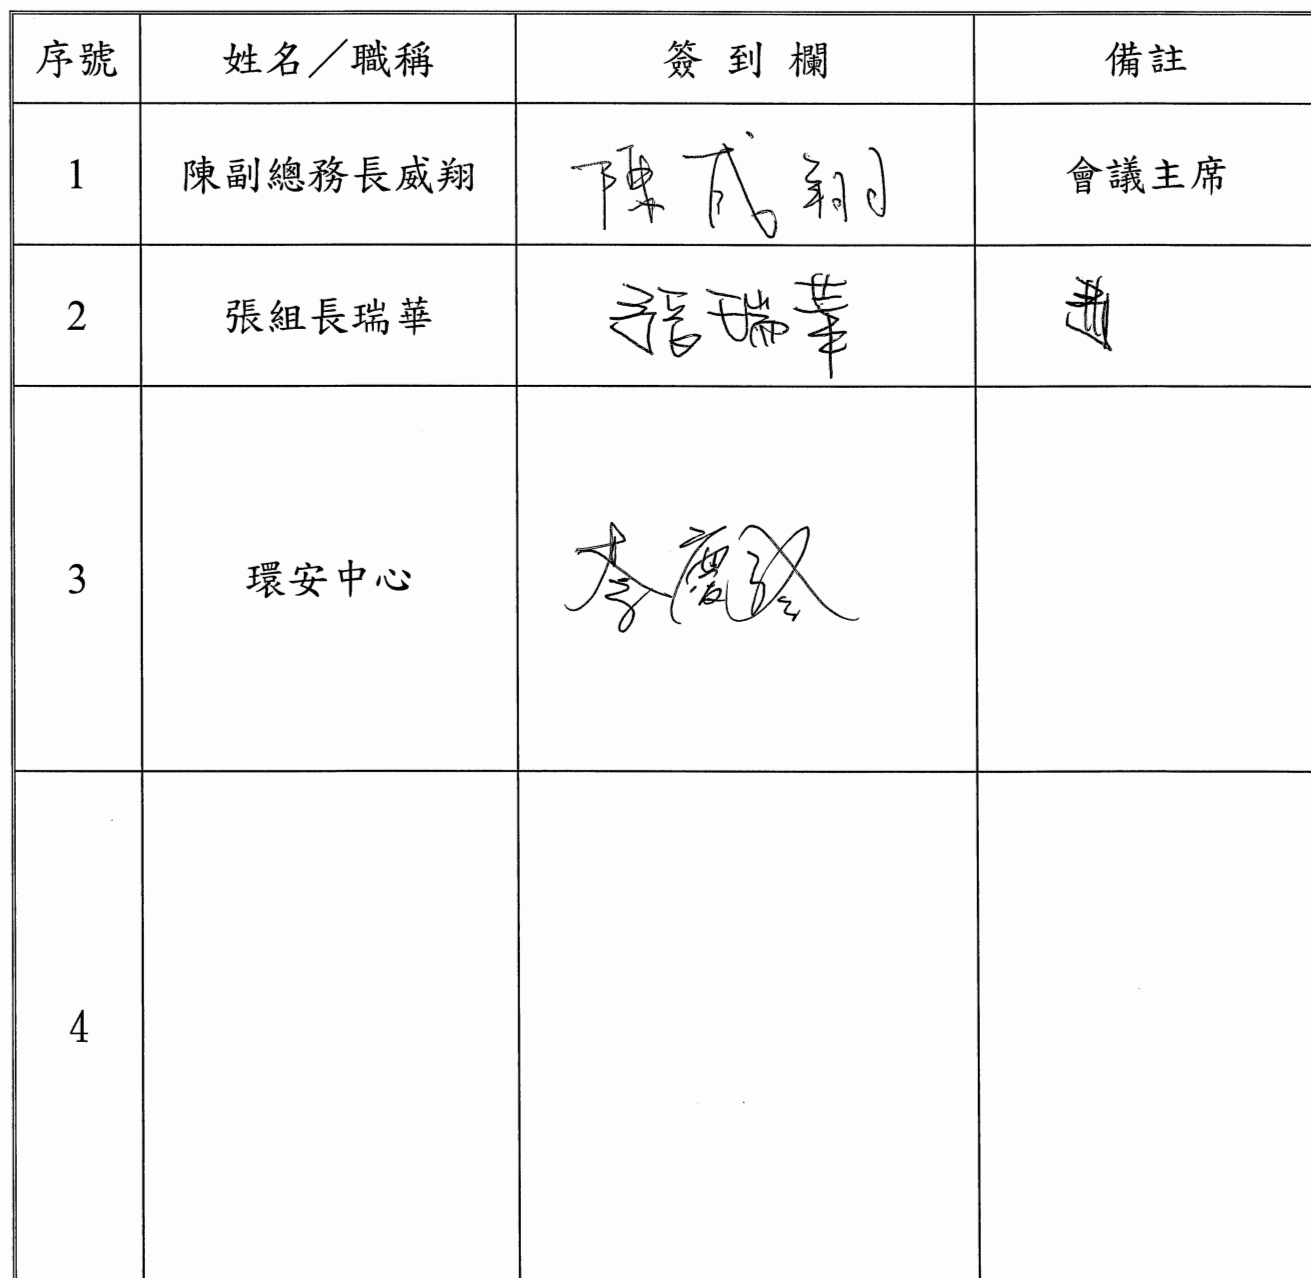 序號 姓名／職稱 簽到欄 備註
1 陳副總務長威翔 陳威翔 會議主席
2 張組長瑞華 張瑞華
3 環安中心
4